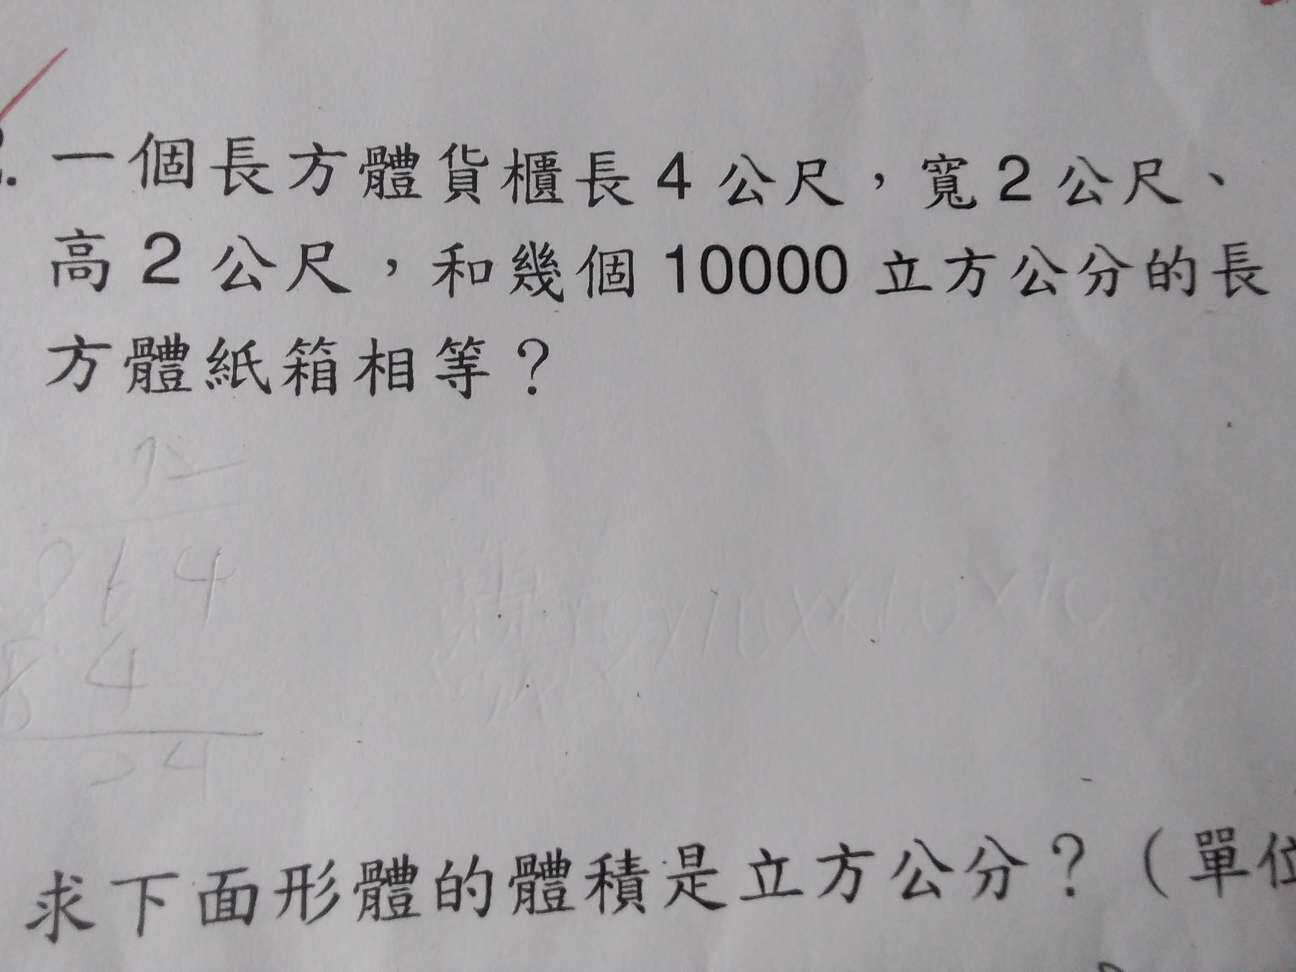 一個長方體貨櫃長 4 公尺，寬 2 公尺、
高 2 公尺，和幾個 10000 立方公分的長
方體紙箱相等？
求下面形體的體積是立方公分？（單位